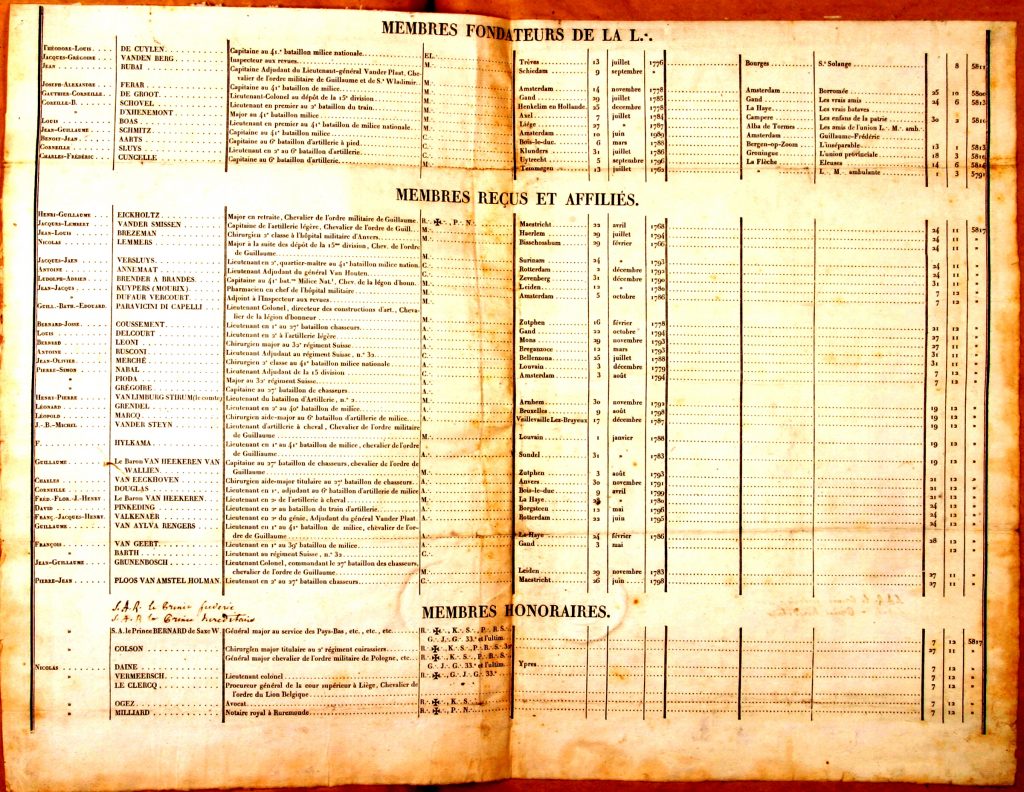 MEMBRES FONDATEURS DE LA L∴.
Théodore-Louis. DE CUYLEN. Capitaine au 41e bataillon milice nationale. EL. Trèves 13 juillet 1776 Bourges Se Solange 8 5811
Jacques-Grégoire. VANDEN BERG. Inspecteur aux revues. M. Schiedam 9 septembre »
Jean RUBAI Capitaine Adjudant du Lieutenant-général Vander Plaat, Che-
valier de l'ordre militaire de Guillaume et de Se Wladimir. M. Amsterdam 14 novembre 1778 Amsterdam Borromée 25 10 5800
Joseph-Alexandre. FERAR. Capitaine au 41e bataillon de milice. M. Gand 29 juillet 1785 Gand Les vrais amis 24 6 5813
Gauthier-Corneille. DE GROOT. Lieutenant-Colonel au dépôt de la 15e division M. Henkelim en Hollande. 25 décembre 1778 La Haye Les vrais bataves
Corneille-B. SCHOVEL Lieutenant en premier au 2e bataillon du train. M. Axel 7 juillet 1784 Campere Les enfans de la patrie 30 2 5810
» D'XHENEMONT Major au 41e bataillon milice M. Liége 27 » 1787 Alba de Tormes Les amis de l'union L. M. amb.
Louis BOAS Lieutenant en premier au 41e bataillon de milice nationale. M. Amsterdam 10 juin Amsterdam Guillaume-Frédéric
Jean-Guillaume SCHMITZ Capitaine au 41e bataillon milice M. Bois-le-duc 6 mars 1788 Bergen-op-Zoom L'inséparable 13 1 5813
Benoit-Jean AARTS Capitaine au 6e bataillon d'artillerie à pied. C. Klunders 31 juillet 1786 Groningue L'union provinciale 18 3
Corneille SLUYS Lieutenant en 2e au 6e bataillon d'artillerie. M. Uytrecht 5 septembre 1796 La Flèche Eleuses 14 6
Charles-Frédéric. CUNCELLE Capitaine au 6e bataillon d'artillerie. M. Temmegen 13 juillet » L. M. ambulante 1 3
MEMBRES REÇUS ET AFFILIÉS.
Henri-Guillaume EICKHOLTZ Major en retraite, Chevalier de l'ordre militaire de Guillaume. R. ✠. P. N. Maestricht 22 avril 1768 24 11 5817
Jacques-Lembert VANDER SMISSEN Capitaine de l'artillerie légère, Chevalier de l'ordre de Guill. M. Haerlem 29 juillet 1794 24 11 »
Jean-Louis BREZEMAN Chirurgien 2e classe à l'hôpital militaire d'Anvers M. Bisschossbum 29 février 1766 24 11 »
Nicolas LEMMERS Major à la suite des dépôt de la 15me division, Chev. de l'ordre
de Guillaume M. Surinam 24 » 1793 24 11 »
Jacques-Jaen VERSLUYS Lieutenant en 2e, quartier-maître au 41e bataillon milice nation. C. Rotterdam 2 décembre 1792 24 11 »
Antoine ANNEMAAT Lieutenant Adjudant du général Van Houten C. Zevenberg 2 décembre 1790 24 11 »
Ludolfe-Adrien. BRENDER A BRANDES. Capitaine au 41e bat.on Milice Nat.e, Chev. de la légion d'honn. M. Leiden 12 » 1780 31 11 »
Jean-Jacques KUYPERS (MOURIX) Pharmacien en chef de l'hôpital militaire M. Amsterdam 5 octobre 1786 7 12 »
» DUFAUR VERCOURT Adjoint à l'Inspecteur aux revues M. 7 12 »
Guill.-Bath.-Edouard. PARAVICINI DI CAPELLI Lieutenant Colonel, directeur des constructions d'art., Cheva-
lier de la légion d'honneur M. Zutphen 16 février 1778
Bernard-Josse COUSSEMENT Lieutenant en 1er au 27e bataillon chasseurs. A. Gand 22 octobre 1794 21 12 »
Louis DELCOURT Lieutenant en 2e à l'artillerie légère A. Mons 29 novembre 1793 27 11 »
Bernard LEONI Chirurgien major au 32e régiment Suisse A. Breganzoce 12 mars 1793 27 11 »
Antoine RUSCONI Lieutenant Adjudant au régiment Suisse, n.° 32 C. Bellenzona 25 juillet 1788 31 11 »
Jean-Olivier MERCHÉ Chirurgien 2e classe au 41e bataillon milice nationale A. Louvain 3 décembre 1779 31 11 »
Pierre-Simon NABAL Lieutenant Adjudant de la 15 division C. Amsterdam 3 août 1794 7 12 »
» PIODA Major au 32e régiment Suisse A. 7 12 »
» GRÉGOIRE Capitaine au 27e bataillon de chasseurs A.
Henry-Pierre VAN LIMBURG STIRUM (le comte) Lieutenant du bataillon d'Artillerie, n.° 2 M. Arnhem 30 novembre 1792
Léonard GRENDEL Lieutenant en 2e au 40e bataillon de milice A. Bruxelles 9 août 1798 19 12 »
Léopold MARCQ Chirurgien aide-major au 6e bataillon d'artillerie de milice. A. Veillevaille Lez-Bruyeux 17 décembre 1787 19 12 »
J.-B.-Michel VANDER STEYN Lieutenant d'artillerie à cheval, Chevalier de l'ordre militaire
de Guillaume M. Louvain 1 janvier 1788 19 12 »
F. HYLKAMA Lieutenant en 1er au 41e bataillon de milice, chevalier de l'ordre
de Guillaume A. Sundel 31 » 1783 19 12 »
Guillaume Le Baron VAN HEEKEREN VAN Capitaine au 27e bataillon de chasseurs, chevalier de l'ordre de 19 12 »
WALLIEN Guillaume M. Zutphen 3 août 1793
Charles VAN EECKHOVEN Chirurgien aide-major titulaire au 27e bataillon de chasseurs A. Anvers 30 novembre 1791 21 12 »
Corneille DOUGLAS Lieutenant en 1er, adjudant au 6e bataillon d'artillerie de milice A. Bois-le-duc 9 avril 1799 21 12 »
Fréd.-Flor.-J.-Henry Le Baron VAN HEEKEREN Lieutenant en 2e de l'artillerie à cheval M. La Haye » 1780 21 12 »
David PINKEDING Lieutenant en 2e au bataillon du train d'artillerie. A. Borgsteen 12 mai 1796 24 12 »
Franç.-Jacques-Henry. VALKENAER Lieutenant en 2e du génie, Adjudant du général Vander Plaat A. Rotterdam 22 juin 1795 24 12 »
Guillaume VAN AYLVA RENGERS Lieutenant en 1er au 41e bataillon de milice, chevalier de l'or- 24 12 »
dre de Guillaume A. La Haye 24 février 1786
François VAN GEERT Lieutenant en 1er au 39e bataillon de milice A. Gand 3 mai 28 12 »
» BARTH Lieutenant au régiment Suisse, n.° 32 C. 12 »
Jean-Guillaume GRUNENBOSCH Lieutenant Colonel, commandant le 27e bataillon des chasseurs,
chevalier de l'ordre de Guillaume M. Leiden 29 novembre 1783
Pierre-Jean PLOOS VAN AMSTEL HOLMAN Lieutenant en 2e au 27e bataillon chasseurs. C. Maestricht 26 juin 1798 27 11 »
27 11 »
S.A.R. le Prince frederic
S.A.R. le Prince hereditaire
MEMBRES HONORAIRES.
» S. A. le Prince BERNARD de Saxe W. Général major au service des Pays-Bas, etc., etc., etc. R. ✠. K. S. P. R. S. 7 12 5817
G. J. G. 33.e et l'ultim.
» COLSON Chirurgien major titulaire au 2e régiment cuirassiers R. ✠. K. S. P. R. S. 32e 27 11 »
Nicolas DAINE Général major chevalier de l'ordre militaire de Pologne, etc. R. ✠. K. S. P. R. S.
G. J. G. 33.e et l'ultim. Ypres 7 12 »
» VERMEERSCH Lieutenant colonel R. ✠. G. J. G. 33.e 7 12 »
» LE CLERCQ Procureur général de la cour supérieur à Liége, Chevalier de 7 12 »
l'ordre du Lion Belgique
» OGEZ Avocat R. ✠. K. S. 7 12 »
» MILLIARD Notaire royal à Ruremonde R. ✠. P. N. 7 12 »